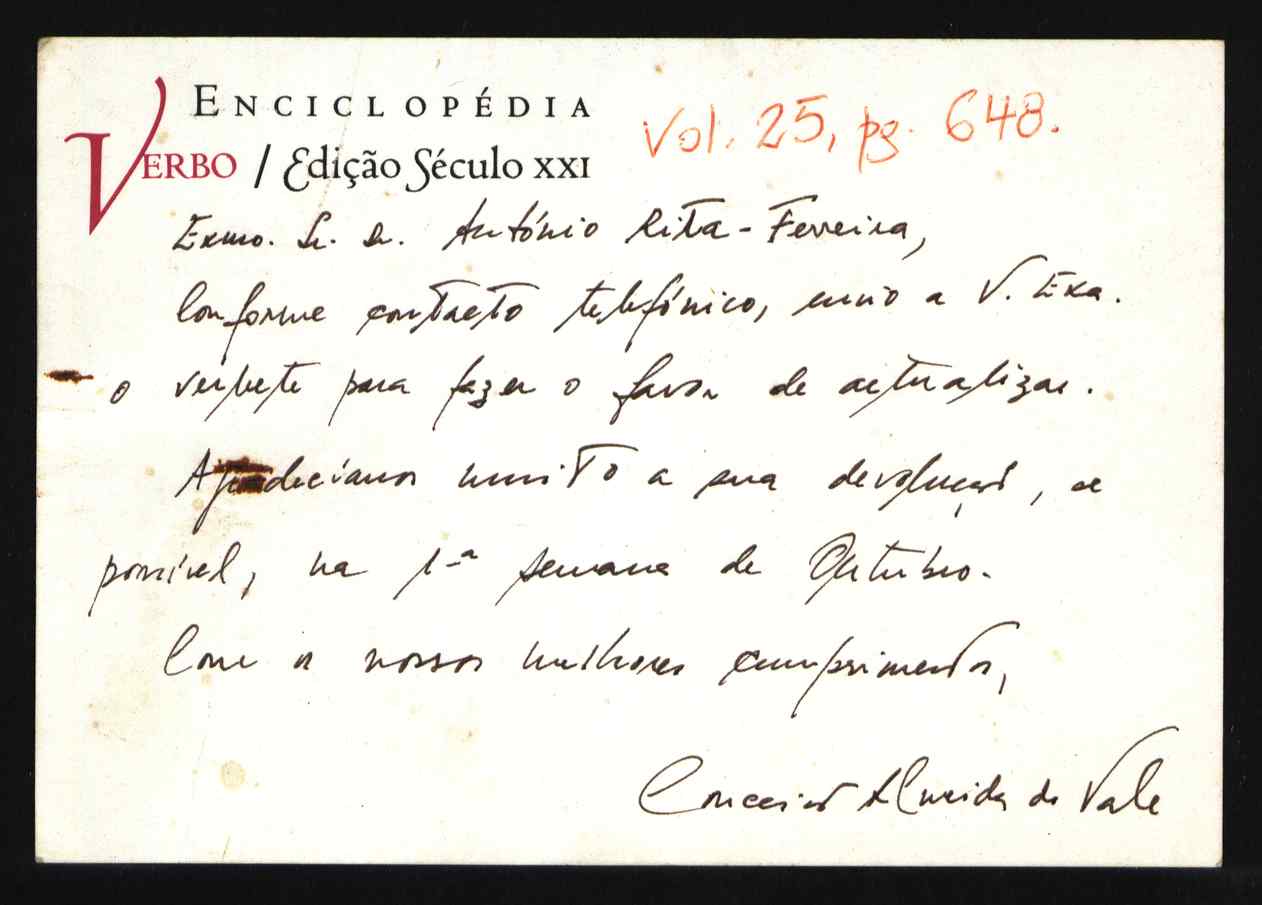 ENCICLOPÉDIA
VERBO / Edição Século XXI
Vol. 25, pg. 648.
Exmo. Sr. Dr. António Rita-Ferreira,
Conforme contacto telefónico, envio a V. Exa.
o verbete para fazer o favor de actualizar.
Agradecíamos muito a sua devolução, se
possível, na 1ª semana de Outubro.
Com os nossos melhores cumprimentos,
Conceição Almeida do Vale